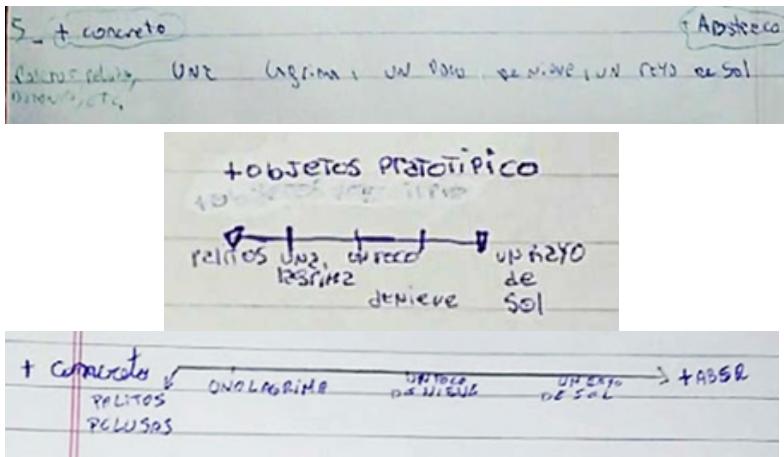 5_ + concreto
+ Abstracto
pelusa,
etc,
UNA lagrima, UN poco de nieve, UN rayo de Sol
+ objetos Prototipico
palitos
UNA lagrima
UN POCO de nieve
UN RAYO de Sol
+ concreto
+ ABSR
PALITOS
PELUSAS
UNA LAGRIMA
UN POCO DE NIEVE
UN RAYO DE SOL